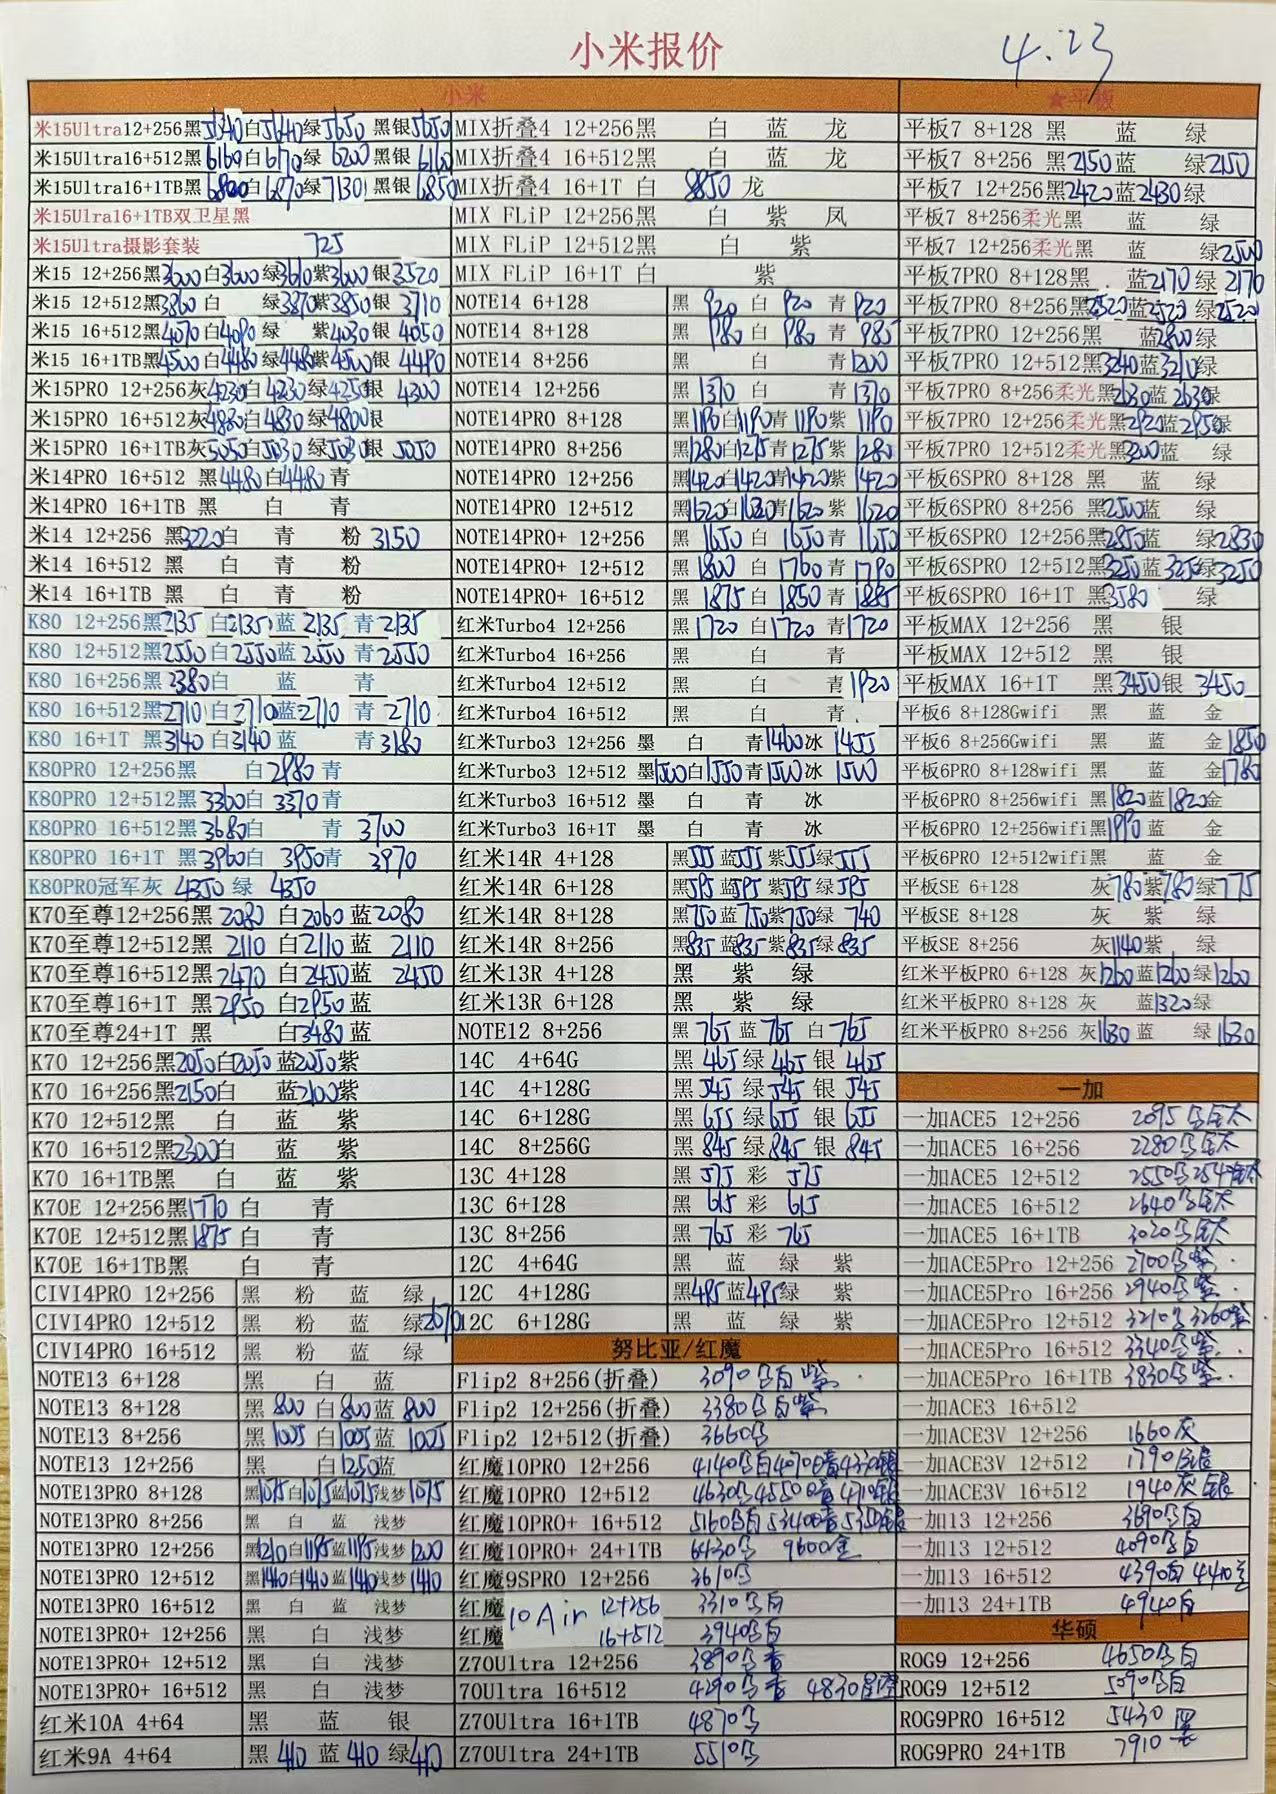 小米报价
4.23
小米
米15Ultra12+256黑5640白5640绿5650 黑银5650
米15Ultra16+512黑6160白6170绿 6200 黑银6160
米15Ultra16+1TB黑6800白6870绿7130 黑银6850
米15Ulra16+1TB双卫星黑
米15Ultra摄影套装 725
米15 12+256黑3600白3600绿3610紫3600银3520
米15 12+512黑3860白 绿3870紫3850银 3710
米15 16+512黑4070白4090绿 紫4030银 4050
米15 16+1TB黑4500白4480绿4480紫4500银 4490
米15PRO 12+256灰4230白4230绿4250银 4300
米15PRO 16+512灰4830白4830绿4800银
米15PRO 16+1TB灰5050白5030 绿5030银 5050
米14PRO 16+512 黑4480白4480青
米14PRO 16+1TB 黑 白 青
米14 12+256 黑3220白 青 粉 3150
米14 16+512 黑 白 青 粉
米14 16+1TB 黑 白 青 粉
K80 12+256黑2135 白2135蓝 2135 青2135
K80 12+512黑2550白2550蓝 2550 青2550
K80 16+256黑2380白 蓝 青
K80 16+512黑2710白2710蓝2710 青 2710
K80 16+1T 黑3140白3140蓝 青3180
K80PRO 12+256黑 白2980青
K80PRO 12+512黑3360白 3370青
K80PRO 16+512黑3680白 青 3700
K80PRO 16+1T 黑3960白 3950青 3970
K80PRO冠军灰 4350 绿 4350
K70至尊12+256黑2080 白2060蓝2080
K70至尊12+512黑 2110 白2110蓝 2110
K70至尊16+512黑2470 白2450蓝 2450
K70至尊16+1T 黑2950 白2950蓝
K70至尊24+1T 黑 白3480蓝
K70 12+256黑2050白2050 蓝2050紫
K70 16+256黑2150白 蓝2100紫
K70 12+512黑 白 蓝 紫
K70 16+512黑2300白 蓝 紫
K70 16+1TB黑 白 蓝 紫
K70E 12+256黑1770 白 青
K70E 12+512黑1875 白 青
K70E 16+1TB黑 白 青
CIVI4PRO 12+256 黑 粉 蓝 绿
CIVI4PRO 12+512 黑 粉 蓝 绿2070
CIVI4PRO 16+512 黑 粉 蓝 绿
NOTE13 6+128 黑 白 蓝
NOTE13 8+128 黑 800 白800蓝 800
NOTE13 8+256 黑 1005 白1005蓝 1005
NOTE13 12+256 黑 白1250蓝
NOTE13PRO 8+128 黑1075白1075蓝1075浅梦1075
NOTE13PRO 8+256 黑 白 蓝 浅梦
NOTE13PRO 12+256 黑1210白1195蓝1195浅梦1200
NOTE13PRO 12+512 黑1410白1410蓝1410浅梦1410
NOTE13PRO 16+512 黑 白 蓝 浅梦
NOTE13PRO+ 12+256 黑 白 浅梦
NOTE13PRO+ 12+512 黑 白 浅梦
NOTE13PRO+ 16+512 黑 白 浅梦
红米10A 4+64 黑 蓝 银
红米9A 4+64 黑 410 蓝 410 绿410
MIX折叠4 12+256黑 白 蓝 龙
MIX折叠4 16+512黑 白 蓝 龙
MIX折叠4 16+1T 白 9850 龙
MIX FLiP 12+256黑 白 紫 凤
MIX FLiP 12+512黑 白 紫
MIX FLiP 16+1T 白 紫
NOTE14 6+128 黑 920 白 920 青 920
NOTE14 8+128 黑 980 白 980 青 985
NOTE14 8+256 黑 白 青1200
NOTE14 12+256 黑 1370 白 青 1370
NOTE14PRO 8+128 黑1190白1190青 1190紫 1190
NOTE14PRO 8+256 黑1280白1275青1275紫 1280
NOTE14PRO 12+256 黑1420白1420青1420紫 1420
NOTE14PRO 12+512 黑1620白1630青1620 紫 1620
NOTE14PRO+ 12+256 黑 1650 白 1650 青1650
NOTE14PRO+ 12+512 黑 1800 白 1760 青 1790
NOTE14PRO+ 16+512 黑 1875 白 1850 青 1885
红米Turbo4 12+256 黑 1720 白1720 青1720
红米Turbo4 16+256 黑 白 青
红米Turbo4 12+512 黑 白 青1920
红米Turbo4 16+512 黑 白 青
红米Turbo3 12+256 墨 白 青1460冰 1455
红米Turbo3 12+512 墨1500白1550青1500冰 1500
红米Turbo3 16+512 墨 白 青 冰
红米Turbo3 16+1T 墨 白 青 冰
红米14R 4+128 黑555 蓝555 紫555绿555
红米14R 6+128 黑595 蓝595 紫595 绿595
红米14R 8+128 黑750蓝750紫750绿 740
红米14R 8+256 黑835 蓝835紫835绿835
红米13R 4+128 黑 紫 绿
红米13R 6+128 黑 紫 绿
NOTE12 8+256 黑 765 蓝 765 白 765
14C 4+64G 黑 465 绿 465 银 465
14C 4+128G 黑 545 绿545 银 545
14C 6+128G 黑 655 绿655 银 655
14C 8+256G 黑 845 绿845 银 845
13C 4+128 黑 575 彩 575
13C 6+128 黑 615 彩 615
13C 8+256 黑 765 彩 765
12C 4+64G 黑 蓝 绿 紫
12C 4+128G 黑495蓝495绿 紫
12C 6+128G 黑 蓝 绿 紫
努比亚/红魔
Flip2 8+256(折叠) 3090 白紫
Flip2 12+256(折叠) 3380 白紫
Flip2 12+512(折叠) 3660
红魔10PRO 12+256 4140 白4070 4330银
红魔10PRO 12+512 4630 4550 4710银
红魔10PRO+ 16+512 5160 白5340 5350银
红魔10PRO+ 24+1TB 6430 9600金
红魔9SPRO 12+256 3610
红魔10 Air 12+256 3310 白
红魔 16+512 3940白
Z70Ultra 12+256 3890 青
70Ultra 16+512 4290 青 4830星空
Z70Ultra 16+1TB 4870
Z70Ultra 24+1TB 5510
★平板
平板7 8+128 黑 蓝 绿
平板7 8+256 黑2150蓝 绿2150
平板7 12+256黑2420蓝2430绿
平板7 8+256柔光黑 蓝 绿
平板7 12+256柔光黑 蓝 绿2500
平板7PRO 8+128黑 蓝2170绿 2170
平板7PRO 8+256黑2520蓝2520 绿2520
平板7PRO 12+256黑 蓝2800绿
平板7PRO 12+512黑3240蓝3210绿
平板7PRO 8+256柔光黑2630蓝 2630绿
平板7PRO 12+256柔光黑2920蓝2950绿
平板7PRO 12+512柔光黑3200蓝 绿
平板6SPRO 8+128 黑 蓝 绿
平板6SPRO 8+256 黑2500蓝 绿
平板6SPRO 12+256黑2850蓝 绿2830
平板6SPRO 12+512黑3250蓝3250绿3250
平板6SPRO 16+1T 黑3580 绿
平板MAX 12+256 黑 银
平板MAX 12+512 黑 银
平板MAX 16+1T 黑3450银 3450
平板6 8+128Gwifi 黑 蓝 金
平板6 8+256Gwifi 黑 蓝 金1850
平板6PRO 8+128wifi 黑 蓝 金1780
平板6PRO 8+256wifi 黑1820蓝1820金
平板6PRO 12+256wifi黑1990蓝 金
平板6PRO 12+512wifi黑 蓝 金
平板SE 6+128 灰780紫780绿775
平板SE 8+128 灰 紫 绿
平板SE 8+256 灰1140紫 绿
红米平板PRO 6+128 灰1260蓝1260绿1260
红米平板PRO 8+128 灰 蓝1320绿
红米平板PRO 8+256 灰1630蓝 绿1630
一加
一加ACE5 12+256 2095 钛
一加ACE5 16+256 2280 钛
一加ACE5 12+512 2550 2540钛
一加ACE5 16+512 2640 钛
一加ACE5 16+1TB 3020 钛
一加ACE5Pro 12+256 2700 紫
一加ACE5Pro 16+256 2940 紫
一加ACE5Pro 12+512 3210 3260紫
一加ACE5Pro 16+512 3340 紫
一加ACE5Pro 16+1TB 3830 紫
一加ACE3 16+512
一加ACE3V 12+256 1660灰
一加ACE3V 12+512 1790 银
一加ACE3V 16+512 1940灰 银
一加13 12+256 3690 白
一加13 12+512 4090 白
一加13 16+512 4390白 4410蓝
一加13 24+1TB 4940白
华硕
ROG9 12+256 4650 白
ROG9 12+512 5090 白
ROG9PRO 16+512 5430 黑
ROG9PRO 24+1TB 7910